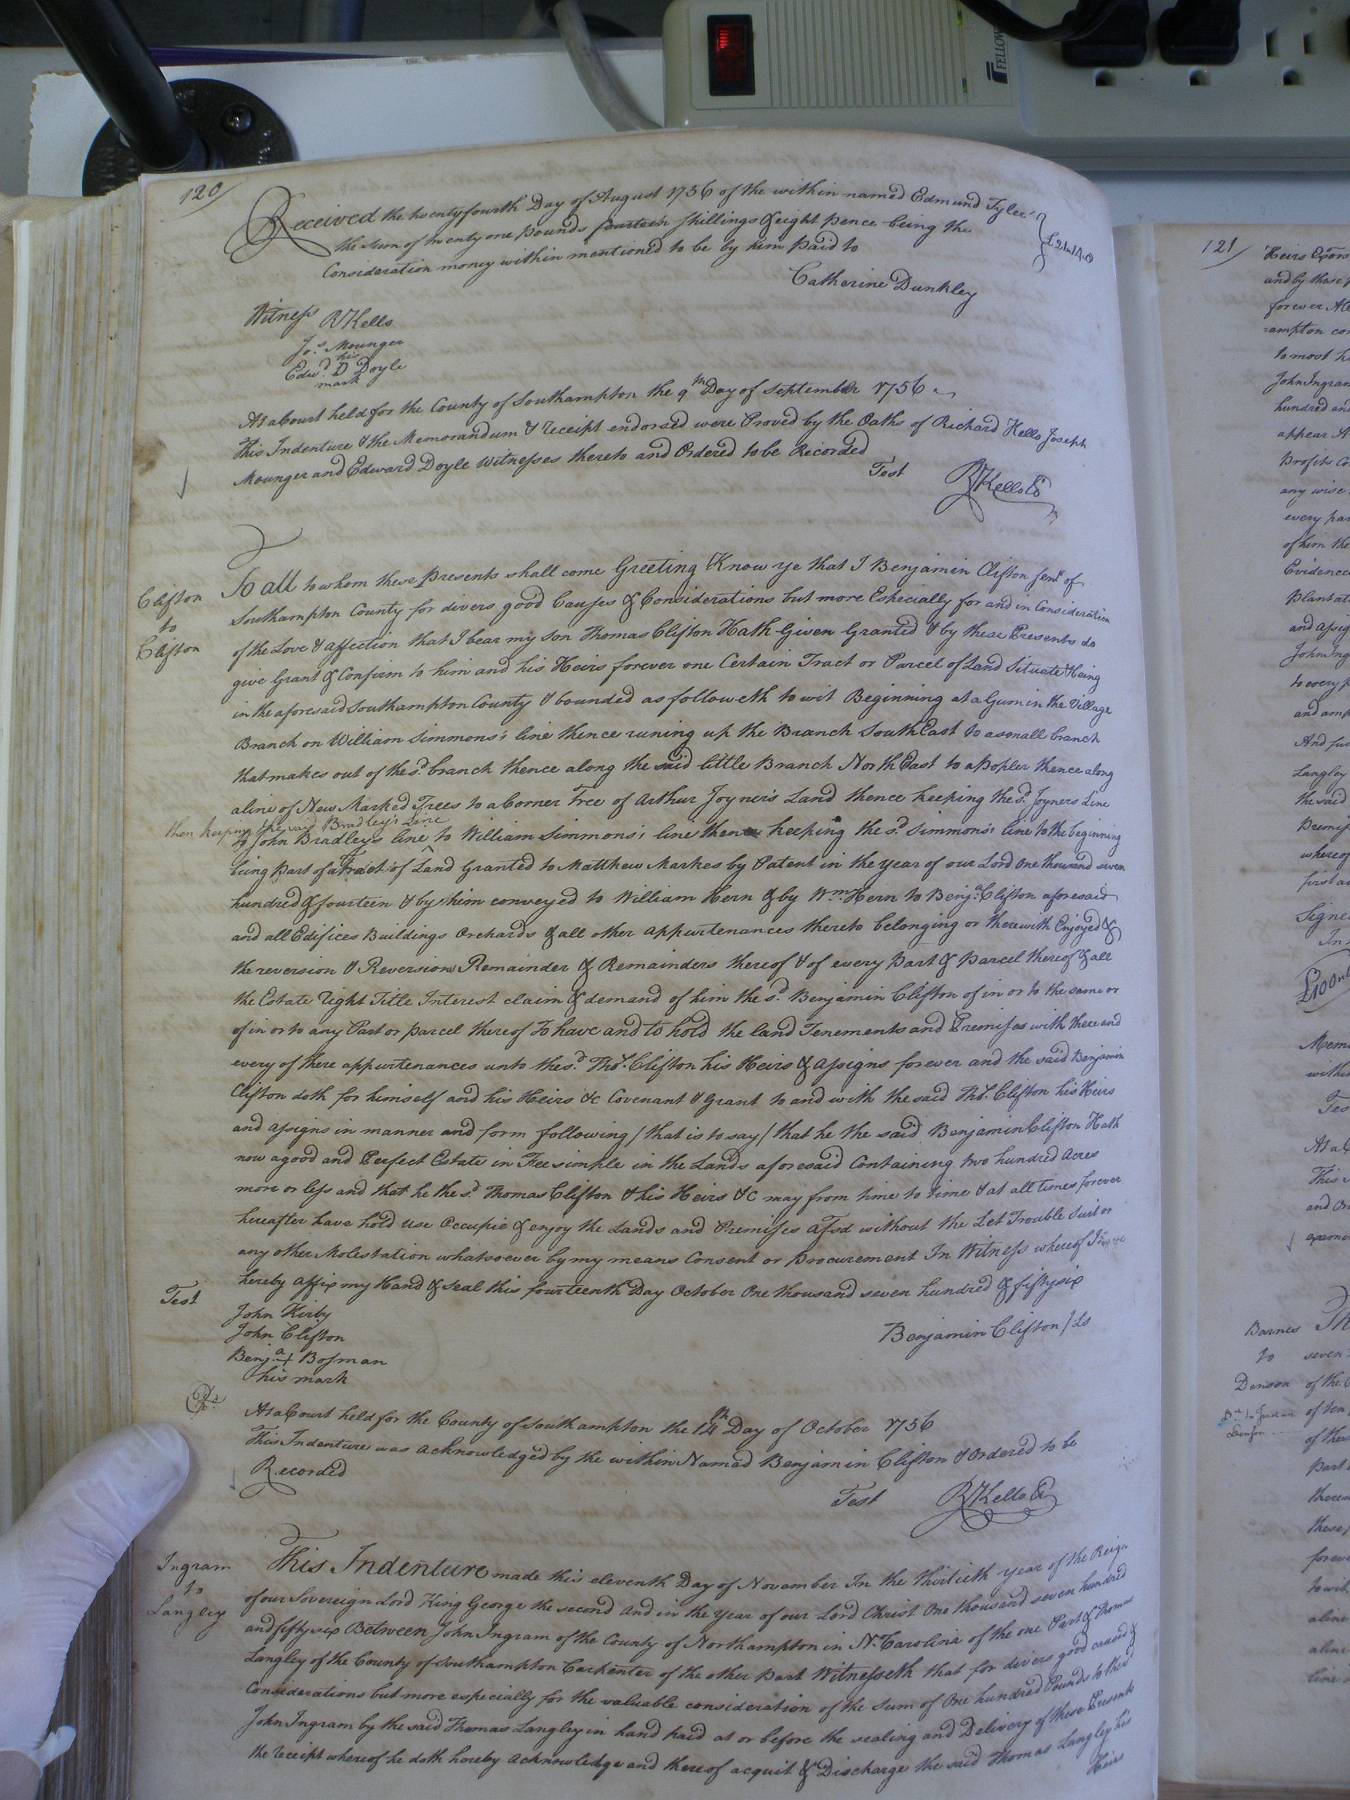 FELLOW
120/
Received the twentyfourth Day of August 1756 of the within named Edmund Tyler
the sum of twenty one pounds fourteen shillings & eight pence being the
Consideration money within mentioned to be by him paid to
Catherine Dunkley
Witness RKello
Jos. Mounger
his
Edwd. D Doyle
mark
At a Court held for the County of Southampton the 9th Day of September 1756
This Indenture & the Memorandum & receipt endorsed were Proved by the Oaths of Richard Kello Joseph
Mounger and Edward Doyle Witnesses thereto and Ordered to be Recorded
Test RKello
Clifton
to
Clifton
To all to whom these Presents shall come Greeting Know ye that I Benjamin Clifton Senr. of
Southampton County for divers good Causes & Considerations but more Especially for and in Consideration
of the Love & affection that I bear my son Thomas Clifton Hath Given Granted & by these Presents do
give Grant & Confirm to him and his Heirs forever one Certain Tract or Parcel of Land Situate & being
in the aforesaid Southampton County & bounded as followeth to wit Beginning at a Gum in the Village
Branch on William Simmons's line thence runing up the Branch South East to a small branch
that makes out of the sd. branch thence along the said little Branch North East to a Popler thence along
a line of New Marked Trees to a Corner Tree of Arthur Joyner's Land thence keeping the sd. Joyners Line
then keeping the said Bradley's Line
to John Bradley's line to William Simmons's line then keeping the sd. Simmons's line to the beginning
being Part of a Tract of Land Granted to Matthew Markes by Patent in the year of our Lord One thousand seven
hundred & fourteen & by him conveyed to William Hern & by Wm. Hern to Benja. Clifton aforesaid
and all Edifices Buildings Orchards & all other appurtenances thereto belonging or therewith Enjoyed &
the reversion & Reversions Remainder & Remainders thereof & of every Part & Parcel thereof & all
the Estate right Title Interest claim & demand of him the sd. Benjamin Clifton of in or to the same or
of in or to any Part or parcel thereof To have and to hold the land Tenements and Premises with there and
every of there appurtenances unto the sd. Thos. Clifton his Heirs & assigns forever and the said Benjamin
Clifton doth for himself and his Heirs &c Covenant & Grant to and with the said Thos. Clifton his Heirs
and assigns in manner and form following / that is to say / that he the said Benjamin Clifton Hath
now a good and Perfect Estate in Fee simple in the Lands aforesaid Containing two hundred Acres
more or less and that he the sd. Thomas Clifton & his Heirs &c may from time to time & at all times forever
hereafter have hold use Occupie & enjoy the Lands and Premises afsd without the Let Trouble Suit or
any other Molestation whatsoever by my means Consent or Procurement In Witness whereof I
hereby affix my Hand & Seal this fourteenth Day October One thousand seven hundred & fifty six
Test
John Kirby
John Clifton
Benja. + Bosman
his mark
Benjamin Clifton / Ls
At a Court held for the County of Southampton the 14th Day of October 1756
This Indenture was acknowledged by the within Named Benjamin Clifton & Ordered to be
Recorded
Test RKello
Ingram
to
Langley
This Indenture made this eleventh Day of November In the thirtieth year of the Reign
of our Sovereign Lord King George the second And in the year of our Lord Christ One thousand seven hundred
and fifty six Between John Ingram of the County of Northampton in N. Carolina of the one Part & Thomas
Langley of the County of Southampton Carpenter of the other Part Witnesseth that for divers good causes &
Considerations but more especially for the valuable consideration of the Sum of One hundred Pounds to the sd
John Ingram by the said Thomas Langley in hand paid at or before the sealing and Delivery of these Presents
the receipt whereof he doth hereby acknowledge and thereof acquit & Discharge the said Thomas Langley his
Heirs
121/
and by these
forever
to most
John Ingram
hundred and
appear
Profits
any wise
of him the
Evidence
and assign
John Ing
to every
Langley
the said
Premis
whereof
first a
Signe
In
£100
Mem
within
Tes
This
Barnes
to
Denson
seven
of the
of ten
Part
these
forev
to wit
a line
a line
line